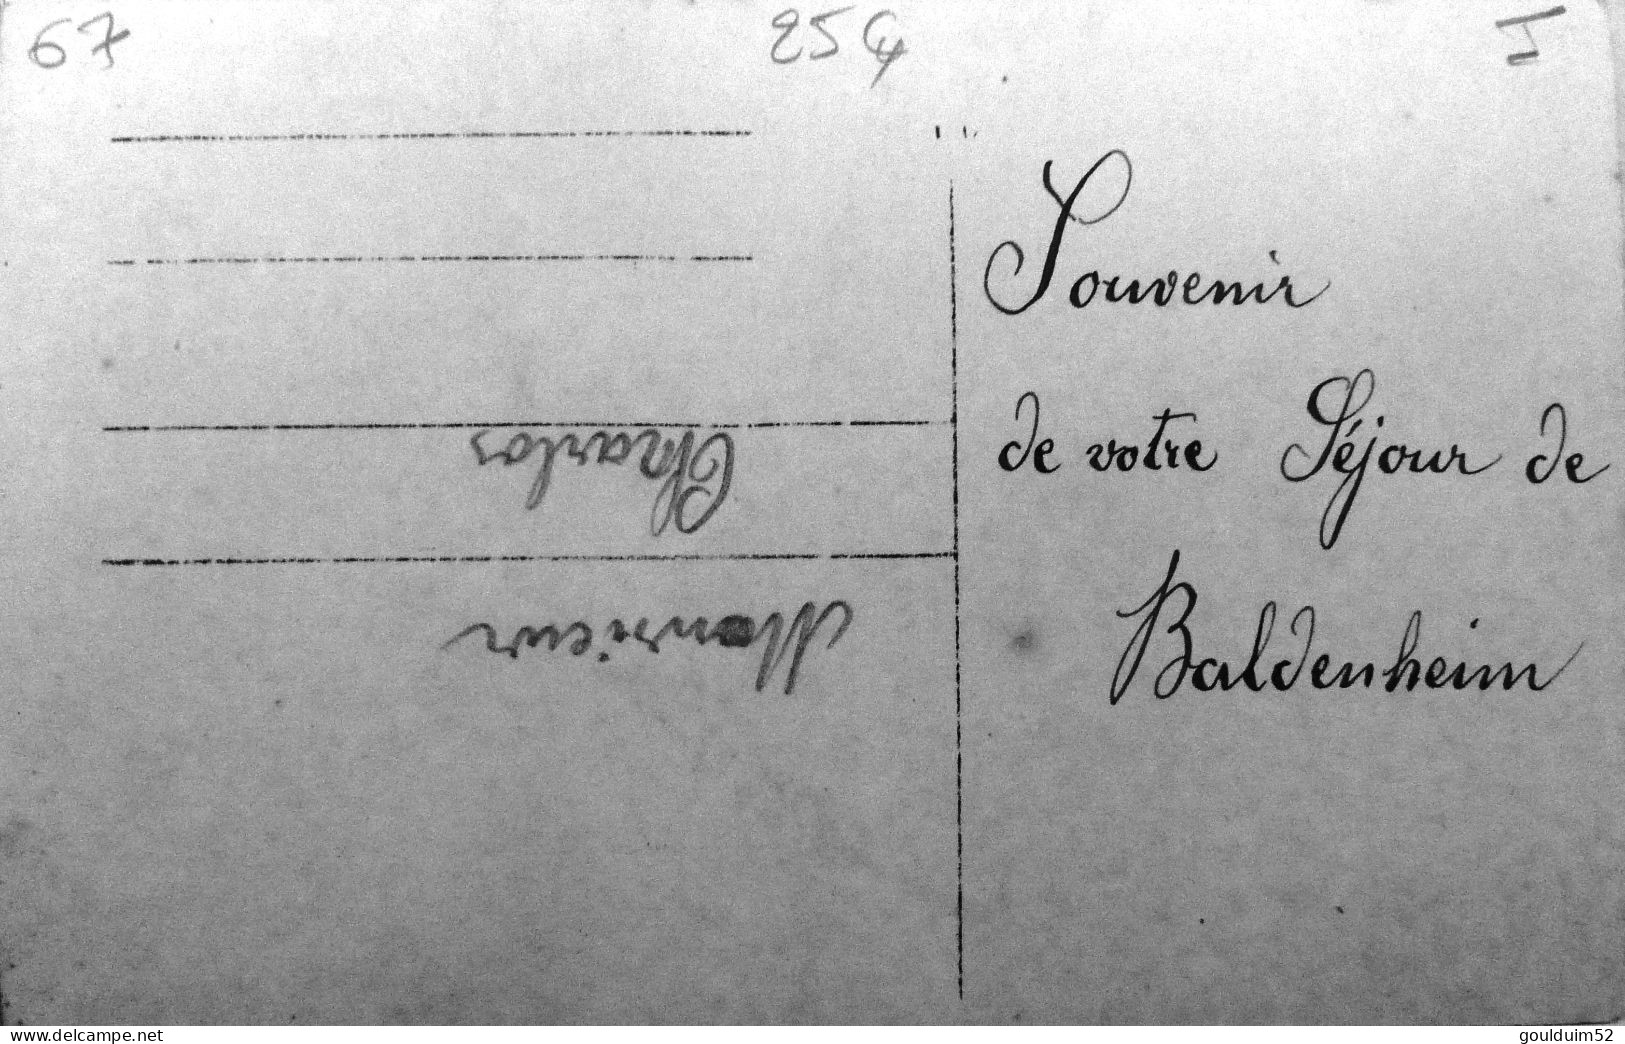 67
254
I
Souvenir
de votre Séjour de
Baldenheim
Monsieur
Charlos
delcampe.net
goulduim52